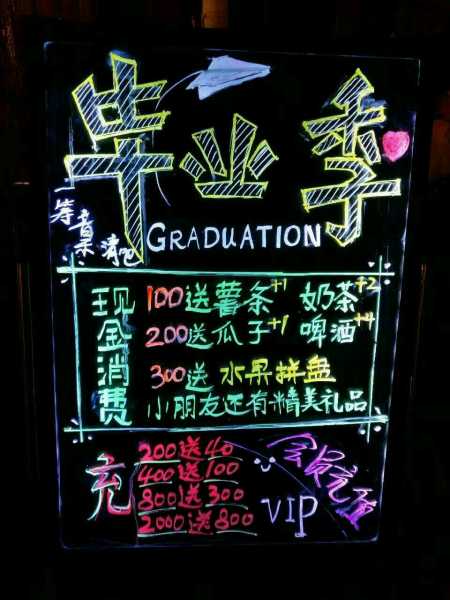 毕业季
一筹音乐清吧
GRADUATION
现金消费
100送薯条+1 奶茶+2
200送瓜子+1 啤酒+4
300送 水果拼盘
小朋友还有精美礼品
充
200送40
400送100
800送300
2000送800
会员充值
VIP